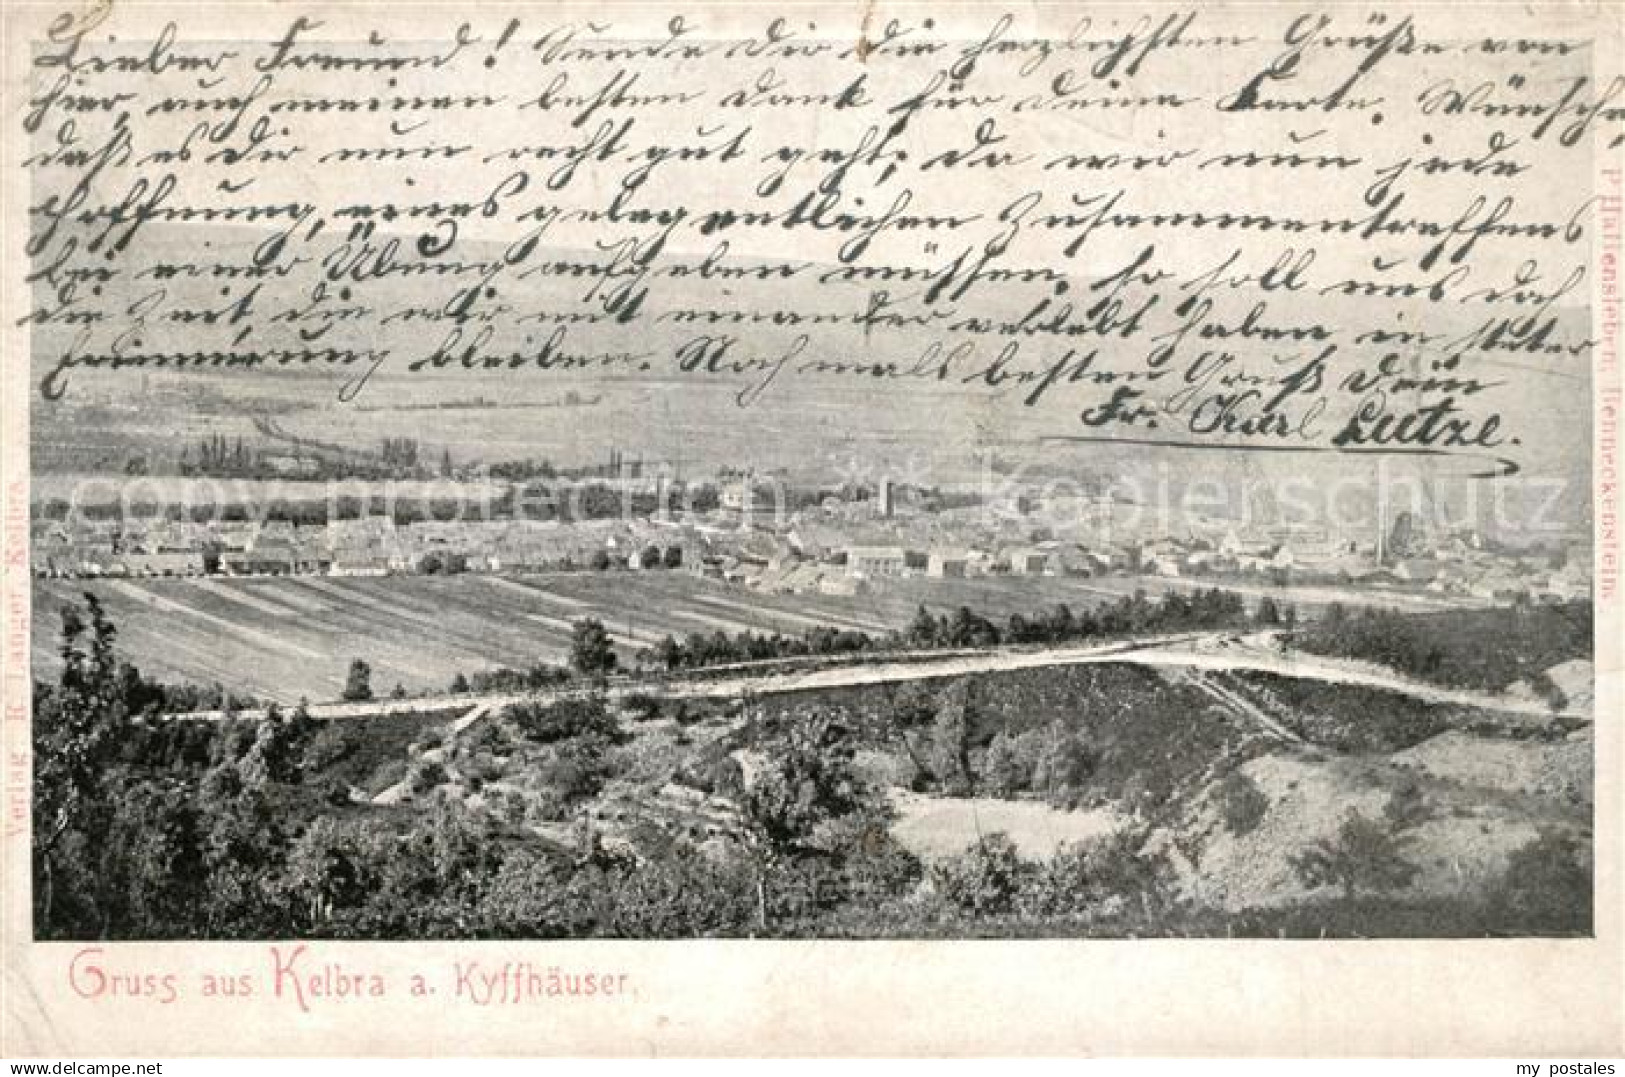 Lieber Freund! Sende Dir die herzlichsten Grüße von
hier, auch meinen besten Dank für deine Karte. Wünsche
daß es Dir nun recht gut geht; da wir nun jede
Hoffnung, eines gelegentlichen Zusammentreffens
bei einer Übung aufgeben müssen, so soll uns doch
die Zeit, die wir mit einander verlebt haben in steter
Erinnerung bleiben. Nochmals besten Gruß Dein
Fr. Karl Lutze.
copy protection kopierschutz
Verlag R. Langer, Kelbra.
Phot. Hallensleben, Benneckenstein.
Gruss aus Kelbra a. Kyffhäuser.
www.delcampe.net
my_postales